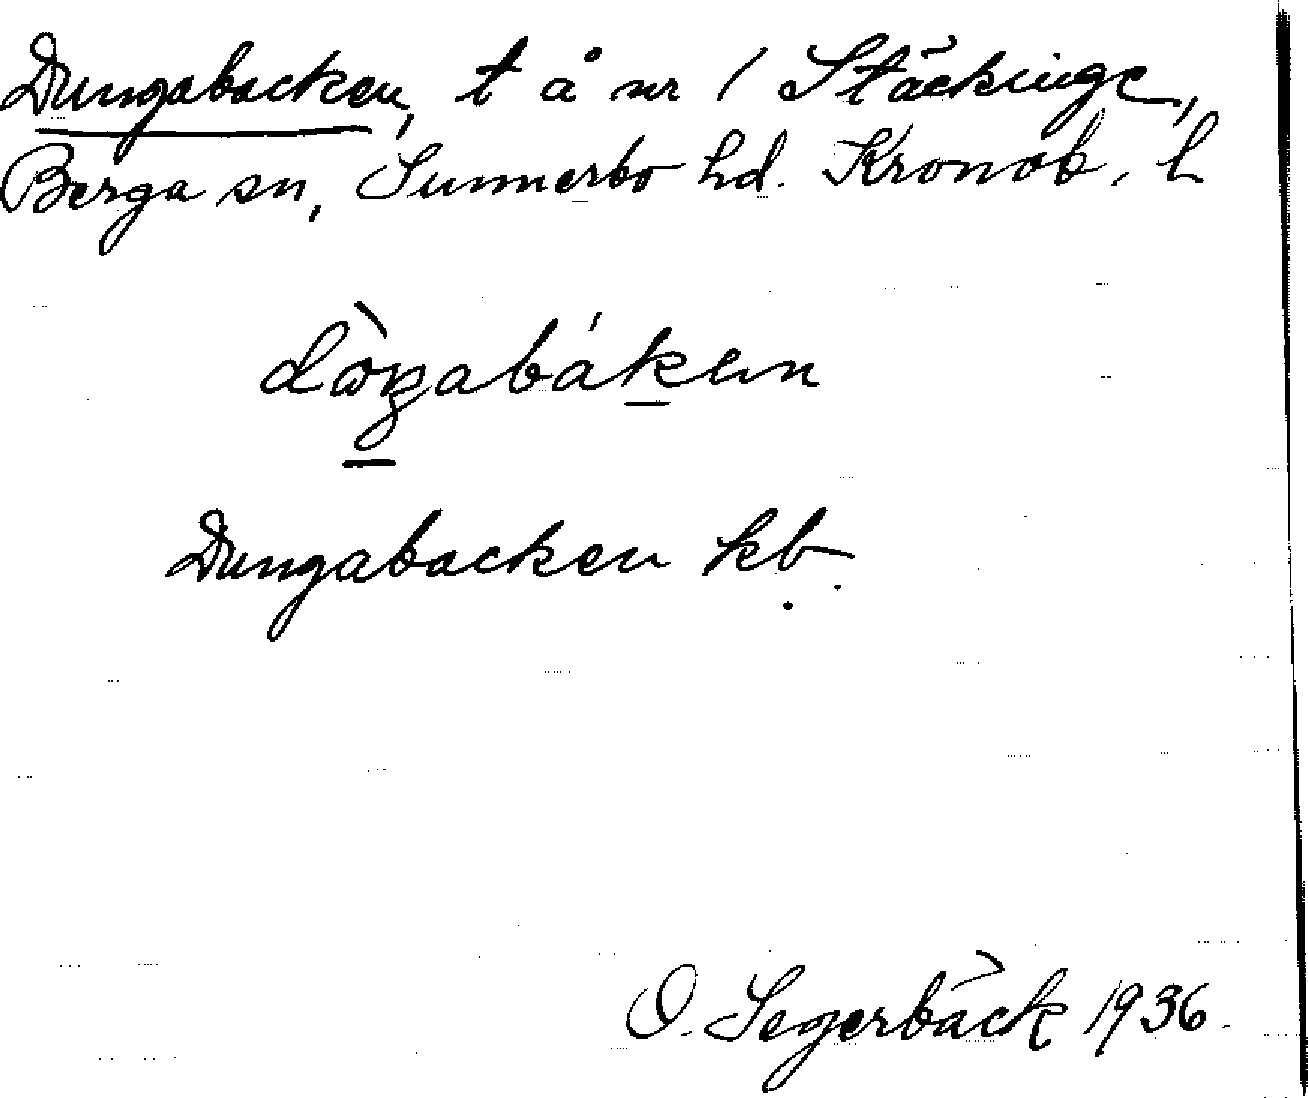 Dungabacken, t å nr 1 Stäckinge,
Berga sn, Sunnerbo hd. Kronob. l
Dungabacken kb.
O. Segerbäck 1936.